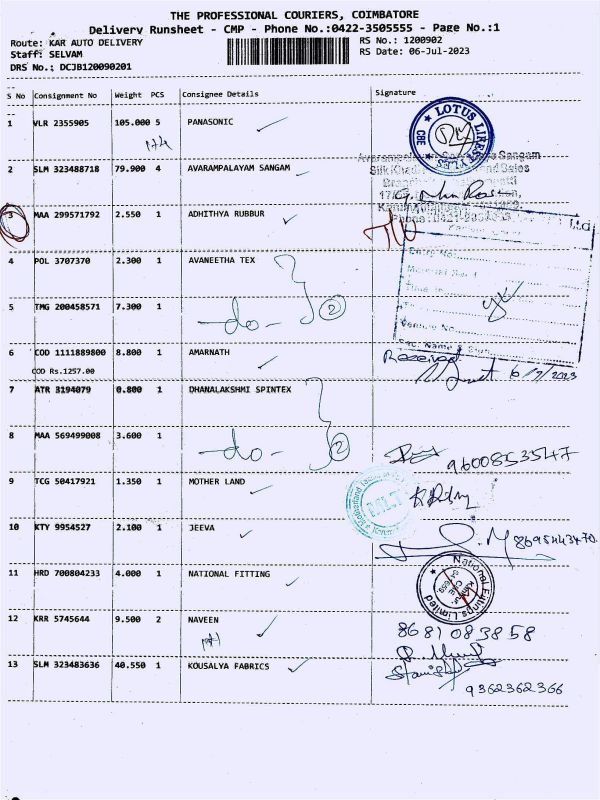 THE PROFESSIONAL COURIERS, COIMBATORE
Delivery Runsheet - CMP - Phone No.:0422-3505555 - Page No.:1
Route: KAR AUTO DELIVERY
RS No.: 1200902
Staff: SELVAM
RS Date: 06-Jul-2023
DRS No.; DCJB120090201
S No Consignment No Weight PCS Consignee Details Signature
1 VLR 2355905 105.000 5 PANASONIC
LOTUS
CBE
2 SLM 323488718 79.900 4 AVARAMPALAYAM SANGAM
3 MAA 299571792 2.550 1 ADHITHYA RUBBUR
4 POL 3707370 2.300 1 AVANEETHA TEX
5 TMG 200458571 7.300 1
-do- 2
6 COD 1111889800 8.800 1 AMARNATH
COD Rs.1257.00
Received
6/7/2023
7 ATR 3194079 0.800 1 DHANALAKSHMI SPINTEX
8 MAA 569499008 3.600 1
-do- 2
9600853547
9 TCG 50417921 1.350 1 MOTHER LAND
MLT
10 KTY 9954527 2.100 1 JEEVA
8695443470
11 HRD 700804233 4.000 1 NATIONAL FITTING
National Fittings Limited
12 KRR 5745644 9.500 2 NAVEEN
8681083858
13 SLM 323483636 40.550 1 KOUSALYA FABRICS
9362362366